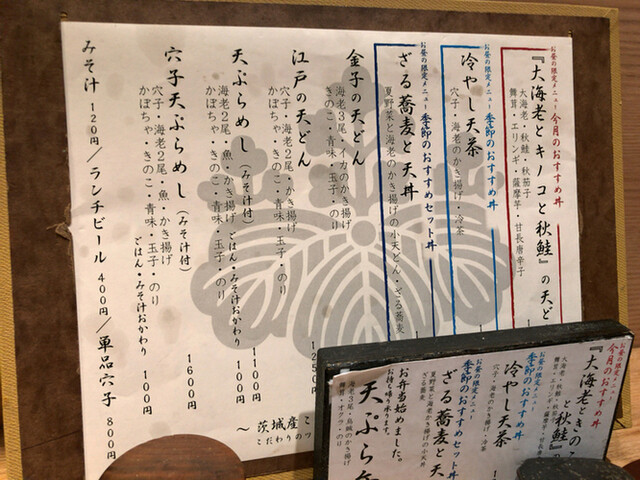 お昼の限定メニュー 今月のおすすめ丼
『大海老とキノコと秋鮭』の天ど
大海老・秋鮭・秋茄子
舞茸・エリンギ・薩摩芋・甘長唐辛子
お昼の限定メニュー 季節のおすすめ丼
冷やし天茶
穴子・海老のかき揚げ・冷茶
お昼の限定メニュー 季節のおすすめセット丼
ざる蕎麦と天丼
夏野菜と海老のかき揚げの小天どん・ざる蕎麦
金子の天どん
海老3尾・イカのかき揚げ
きのこ・青味・玉子・のり
江戸の天どん
穴子・海老2尾・かき揚げ
かぼちゃ・きのこ・青味・玉子・のり
1250
天ぷらめし(みそ汁付)
海老2尾・魚・かき揚げ
かぼちゃ・きのこ・青味・玉子・のり
1100円
ごはん・みそ汁おかわり 100円
穴子天ぷらめし(みそ汁付)
穴子・海老2尾・魚・かき揚げ
かぼちゃ・きのこ・青味・玉子・のり
1600円
ごはん・みそ汁おかわり 100円
みそ汁 120円/ランチビール 400円/単品穴子 800円
~茨城産こ
こだわりのこ
お昼の限定メニュー
今月のおすすめ丼
『大海老ときのこ
と秋鮭』
大海老・秋鮭・秋茄子
舞茸・エリンギ・薩摩芋・甘長
お昼の限定メニュー
季節のおすすめ丼
冷やし天茶
穴子・海老のかき揚げ・冷茶
お昼の限定メニュー
季節のおすすめセット丼
ざる蕎麦と天
夏野菜と海老のかき揚げの小天丼
ざる蕎麦
お弁当始めました。
お持ち帰り承ります。
天ぷら